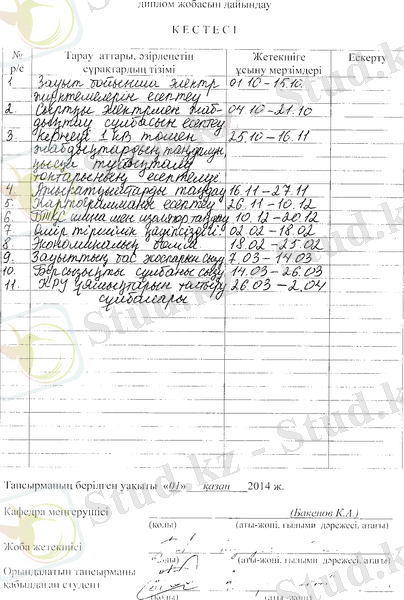 диплом жобасын дайындау
К Е С Т Е С І
№ р/с Тарау аттары, әзірленетін сұрақтардың тізімі Жетекшіге ұсыну мерзімдері Ескерту
1. Зауыт бойынша электр 01.10 – 15.10.
жүктемелерін есептеу
2. Сыртқы электрмен жаб- 04.10 – 21.10
дықтау сұлбасын есептеу
3. Кернеуі 1 кВ төмен 25.10 – 16.11
жабдықтардың таңдалуы,
қысқа тұйықталу
токтарының есептелуі.
4. Ажыратқыштарды таңдау 16.11 – 27.11
5. Картограмманы есептеу 26.11 – 10.12
6. БТҚС шина мен изолятор таңдау 10.12 – 20.12
7. Өмір тіршілік қауіпсіздігі 02.02 – 18.02
8. Экономикалық бөлім 18.02 – 25.02
9. Зауыттың бас жоспарын сызу 7.03 – 14.03
10. Бірсызықты сұлбаны сызу 14.03 – 26.03
11. ЖРУ ұяшықтарын толтыру 26.03 – 2.04
сұлбалары
Тапсырманың берілген уақыты «01» қазан 2014 ж.
Кафедра меңгерушісі (Бакенов К.А.)
(қолы) (аты-жөні, ғылыми дәрежесі, атағы)
Жоба жетекшісі
(қолы) (аты-жөні, ғылыми дәрежесі, атағы)
Орындалатын тапсырманы
қабылдаған студент
(қолы) (аты-жөні)
Stud.kz - Stud.kz
Stud.kz - Stud.kz
Stud.kz - Stud.kz